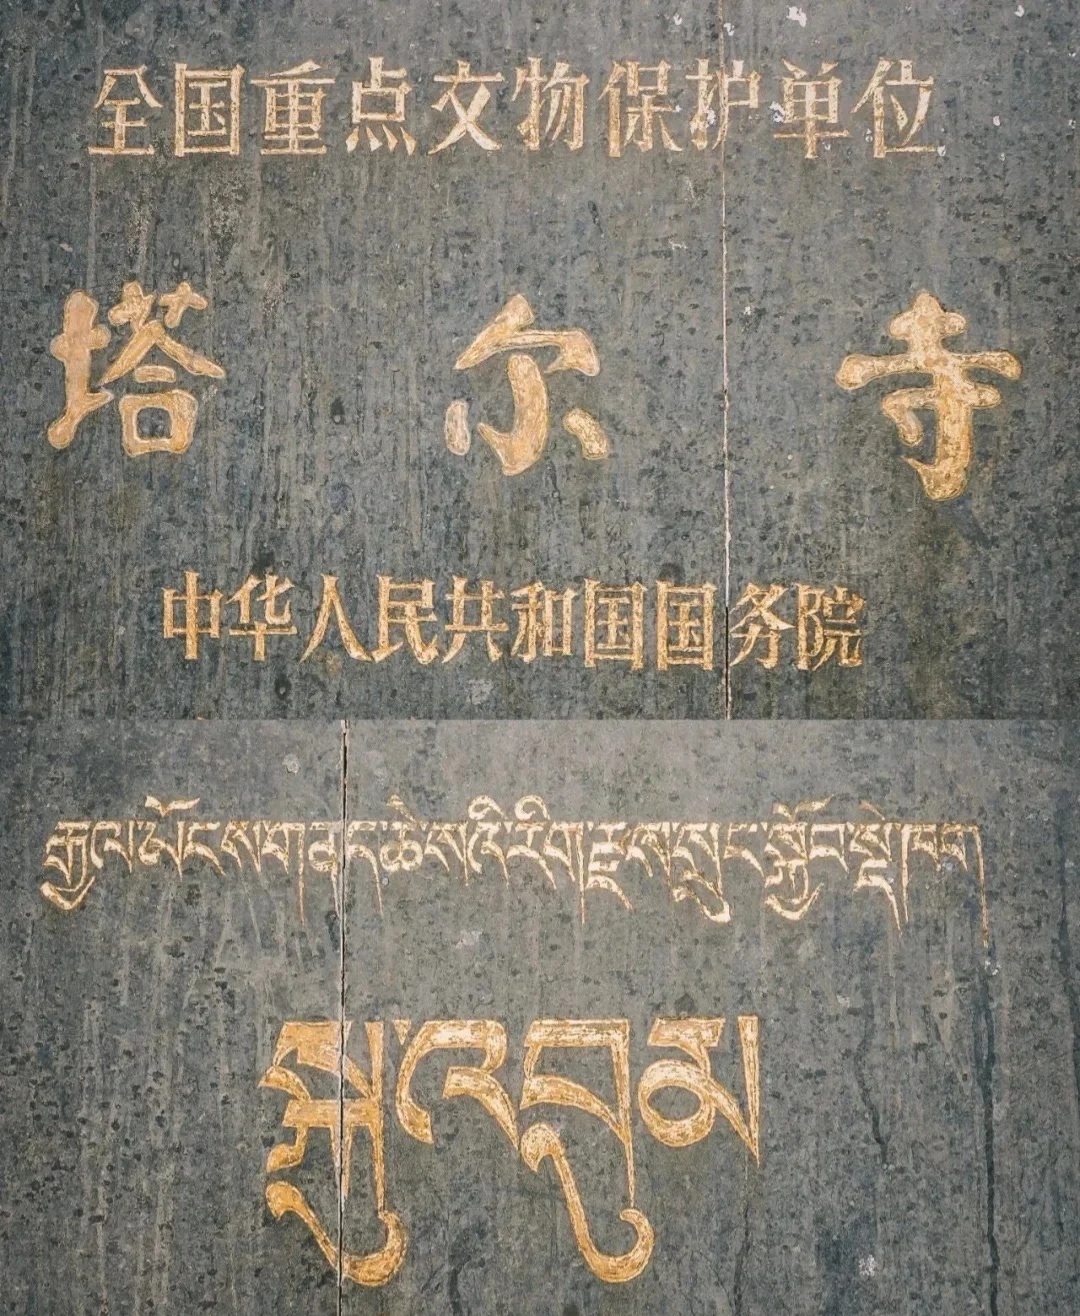 全国重点文物保护单位
塔尔寺
中华人民共和国国务院
རྒྱལ་ཡོངས་གནད་ཆེ་བའི་རིག་རྫས་སྲུང་སྐྱོབ་སྡེ་ཁག
སྐུ་འབུམ